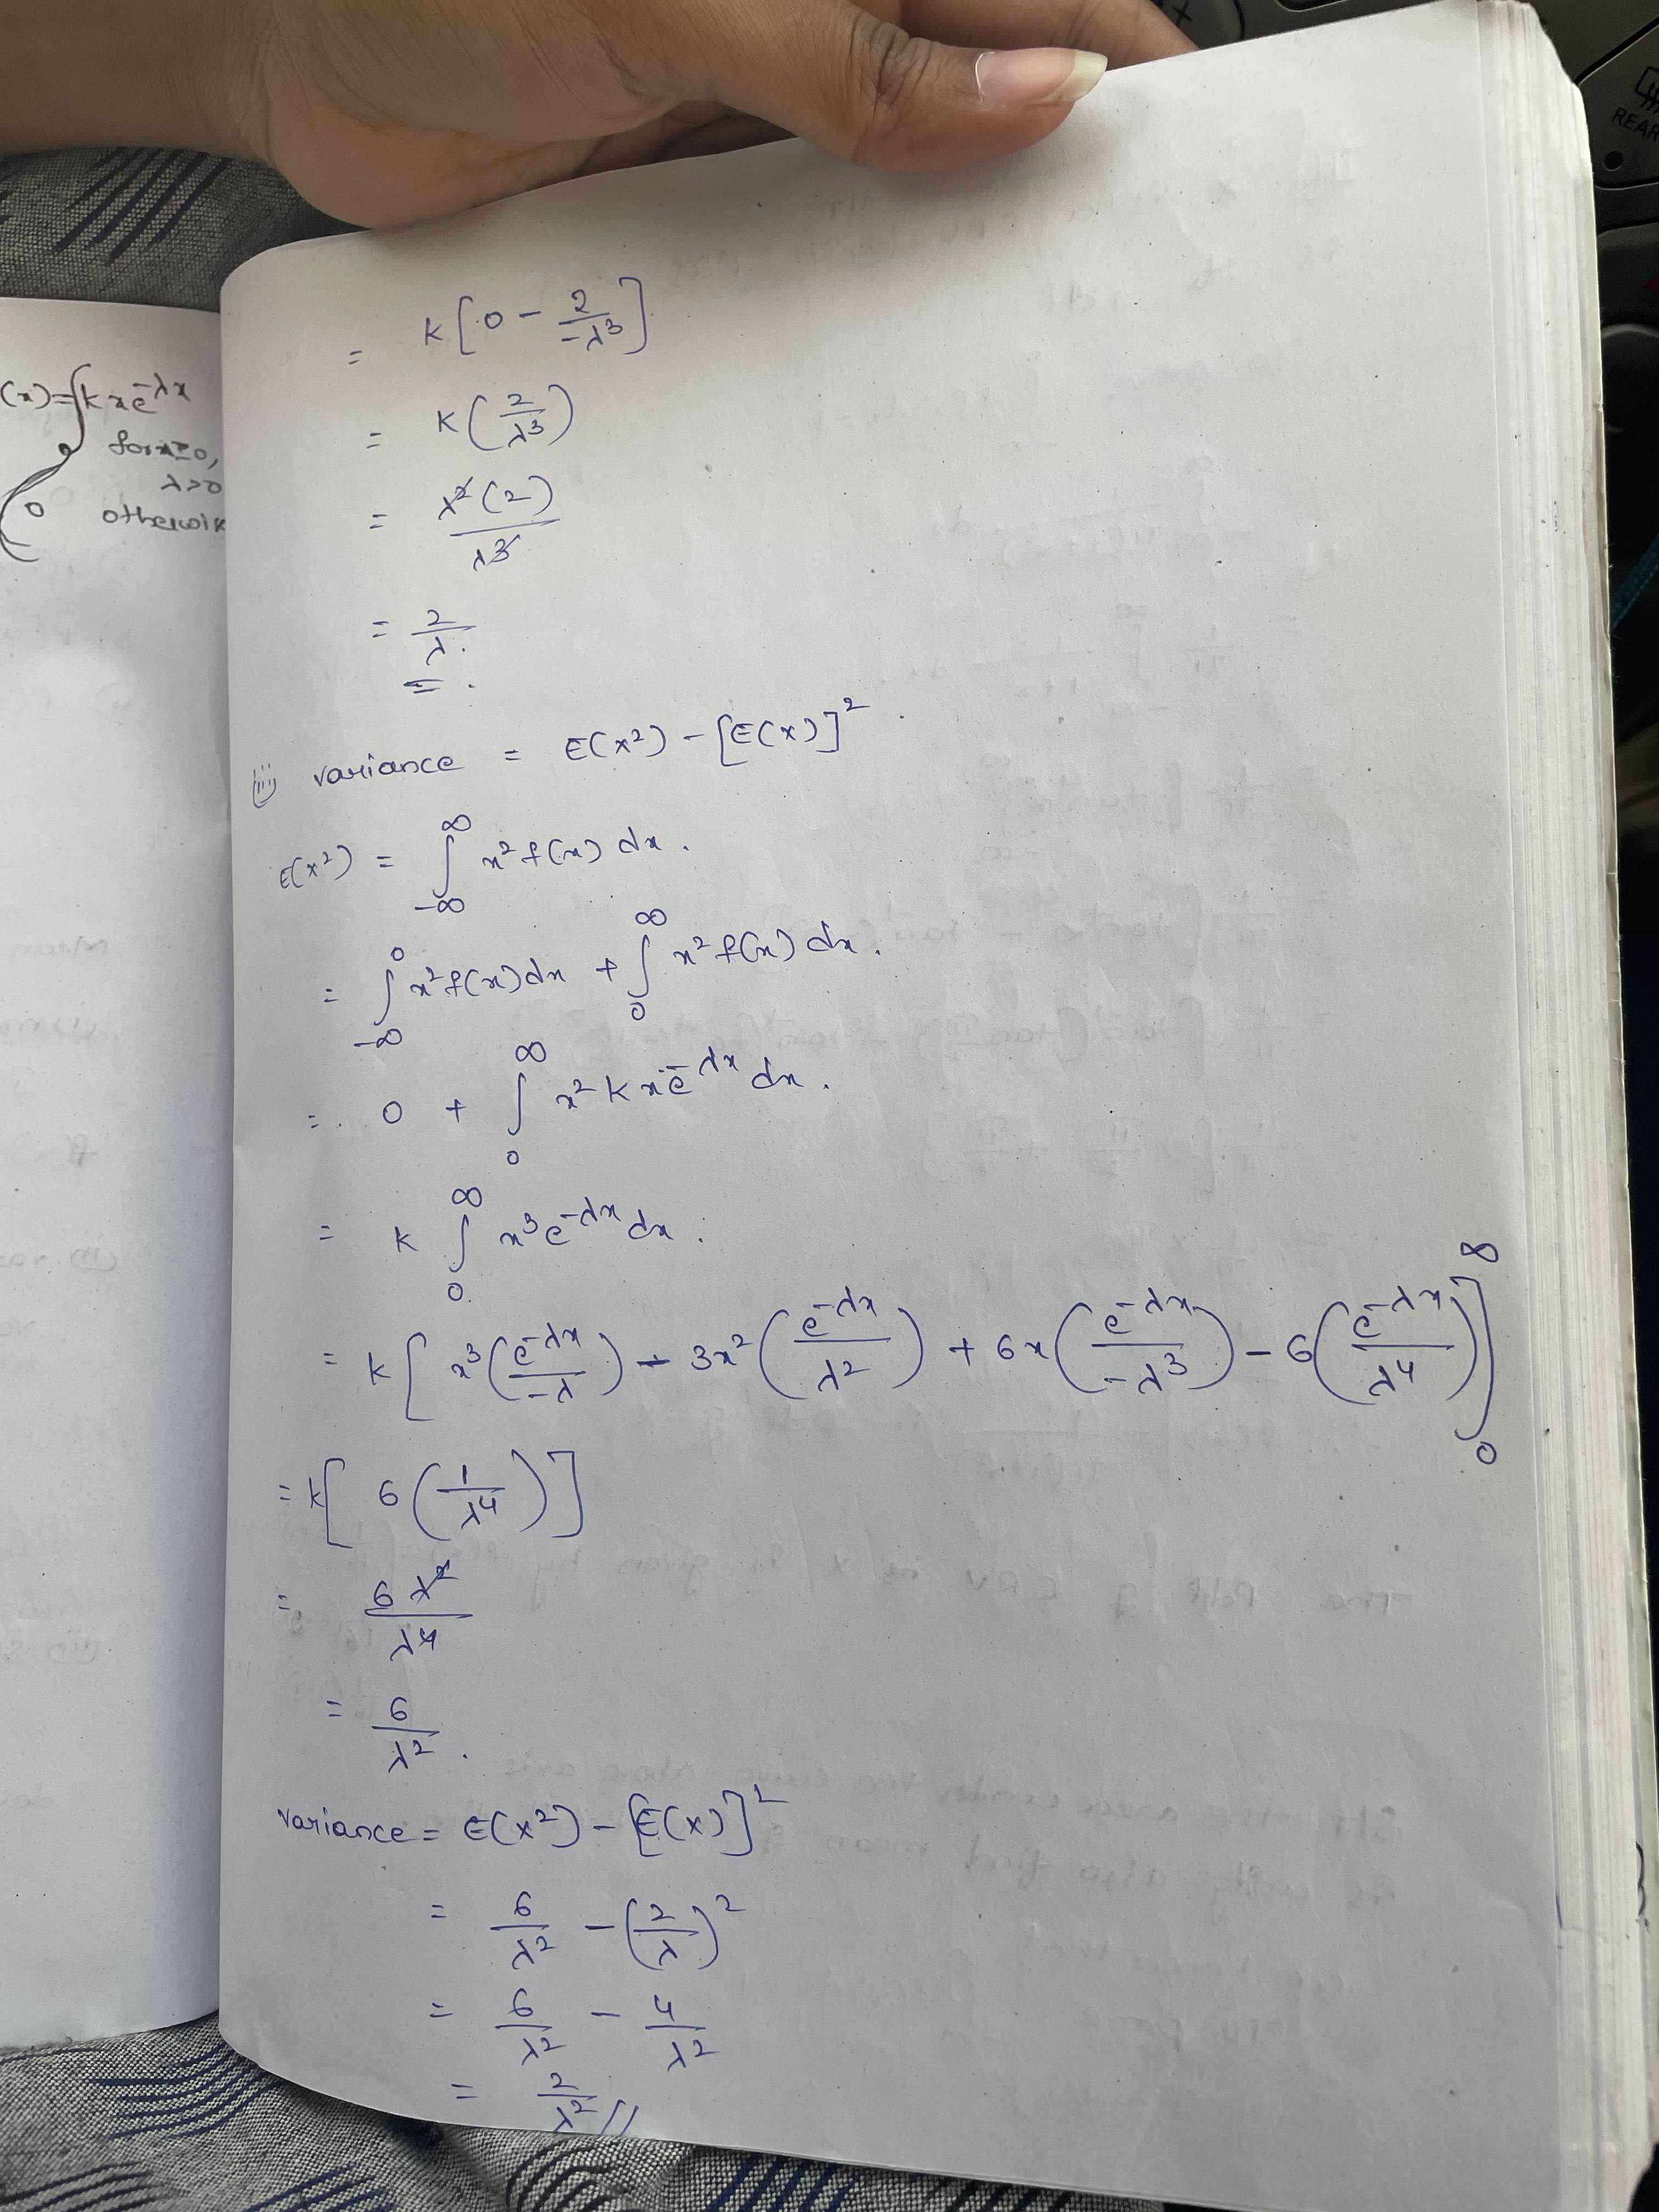 REAR
(x)= k x e^-λx
for x≥0,
λ>0
0 otherwis
= k[0 - 2/-λ^3]
= k(2/λ^3)
= λ^2(2)/λ^3
= 2/λ.
iii) variance = E(x^2) - [E(x)]^2.
E(x^2) = ∫_-∞^∞ x^2 f(x) dx.
= ∫_-∞^0 x^2 f(x) dx + ∫_0^∞ x^2 f(x) dx.
= 0 + ∫_0^∞ x^2 k x e^-λx dx.
= k ∫_0^∞ x^3 e^-λx dx.
= k[x^3(e^-λx/-λ) - 3x^2(e^-λx/λ^2) + 6x(e^-λx/-λ^3) - 6(e^-λx/λ^4)]_0^∞
= k[6(1/λ^4)]
= 6 λ^2/λ^4
= 6/λ^2.
variance = E(x^2) - [E(x)]^2
= 6/λ^2 - (2/λ)^2
= 6/λ^2 - 4/λ^2
= 2/λ^2 //